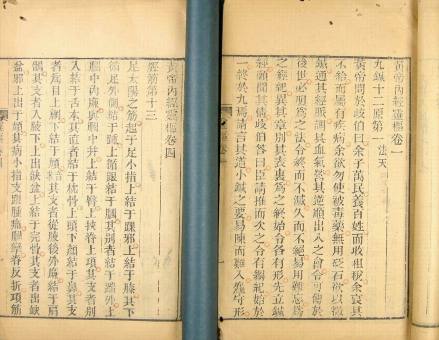 黃帝內經靈樞卷一
九鍼十二原第一 法天
黃帝問於岐伯曰余子萬民養百姓而收租稅余哀其
不給而屬有疾病余欲勿使被毒藥無用砭石欲以微
鍼通其經脈調其血氣營其逆順出入之會令可傳於
後世必明爲之法令終而不滅久而不絕易用難忘爲
之經紀異其章別其表裏爲之終始令各有形先立鍼
經願聞其情岐伯答曰臣請推而次之令有綱紀始於
一終於九焉請言其道小鍼之要易陳而難入麤守形
黃帝內經靈樞卷四
經筋第十三
足太陽之筋起于足小指上結于踝邪上結于膝其下
循足外側結于踵上循跟結于膕其別者結于踹外上
膕中內廉與膕中并上結于臀上挾脊上項其支者別
入結于舌本其直者結于枕骨上頭下顏結于鼻其支
者爲目上網下結于頄其支者從腋後外廉結于肩
髃其支者入腋下上出缺盆上結于完骨其支者出缺
盆邪上出于頄其病小指支跟腫痛膕攣脊反折項筋